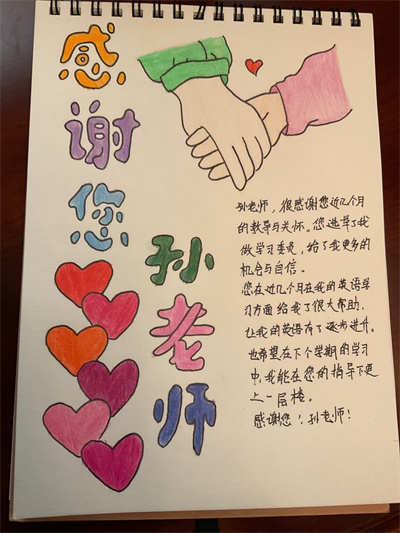 感谢您
孙老师
孙老师，很感谢您近几个月
的教导与关怀。您选举了我
做学习委员，给了我更多的
机会与自信。
您在近几个月在我的英语学
习方面给我了很大帮助，
让我的英语有了逐步进升。
也希望在下个学期的学习
中，我能在您的指导下更
上一层楼。
感谢您！孙老师！